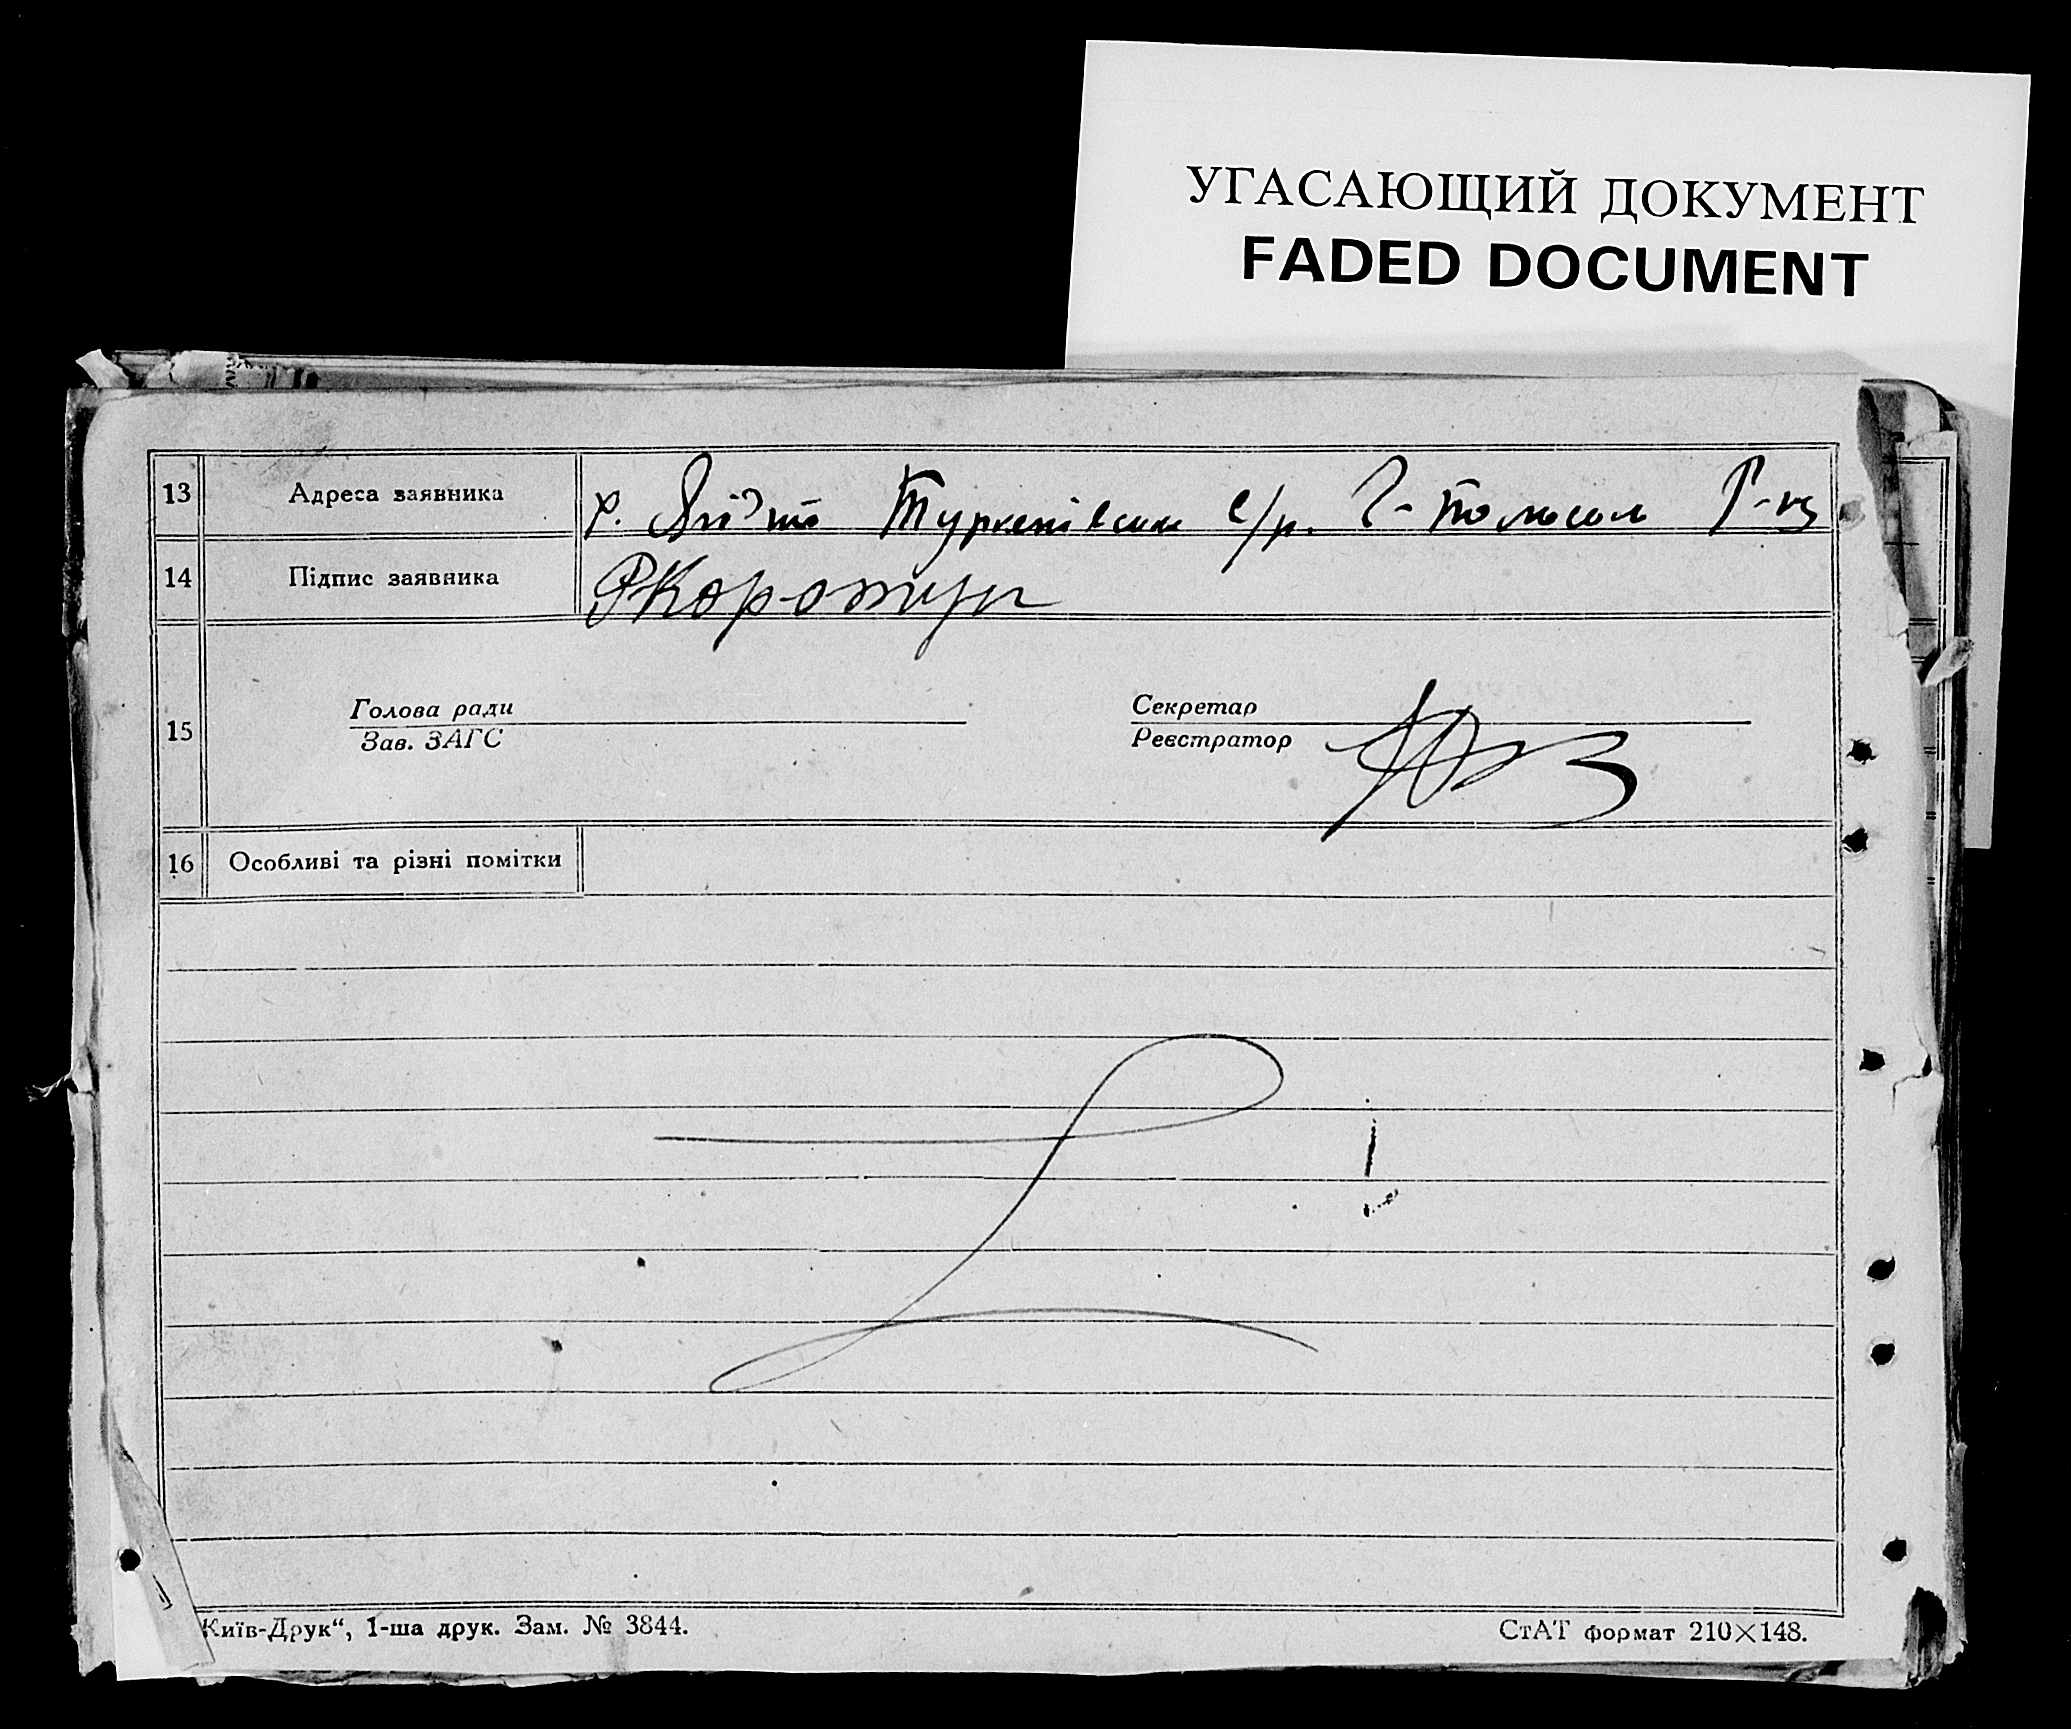 УГАСАЮЩИЙ ДОКУМЕНТ
FADED DOCUMENT
13 Адреса заявника х. с/р. Р-ну
14 Підпис заявника
15 Голова ради Секретар
Зав. ЗАГС Реєстратор
16 Особливі та різні помітки
Київ-Друк“, 1-ша друк. Зам. № 3844. СтАТ формат 210×148.